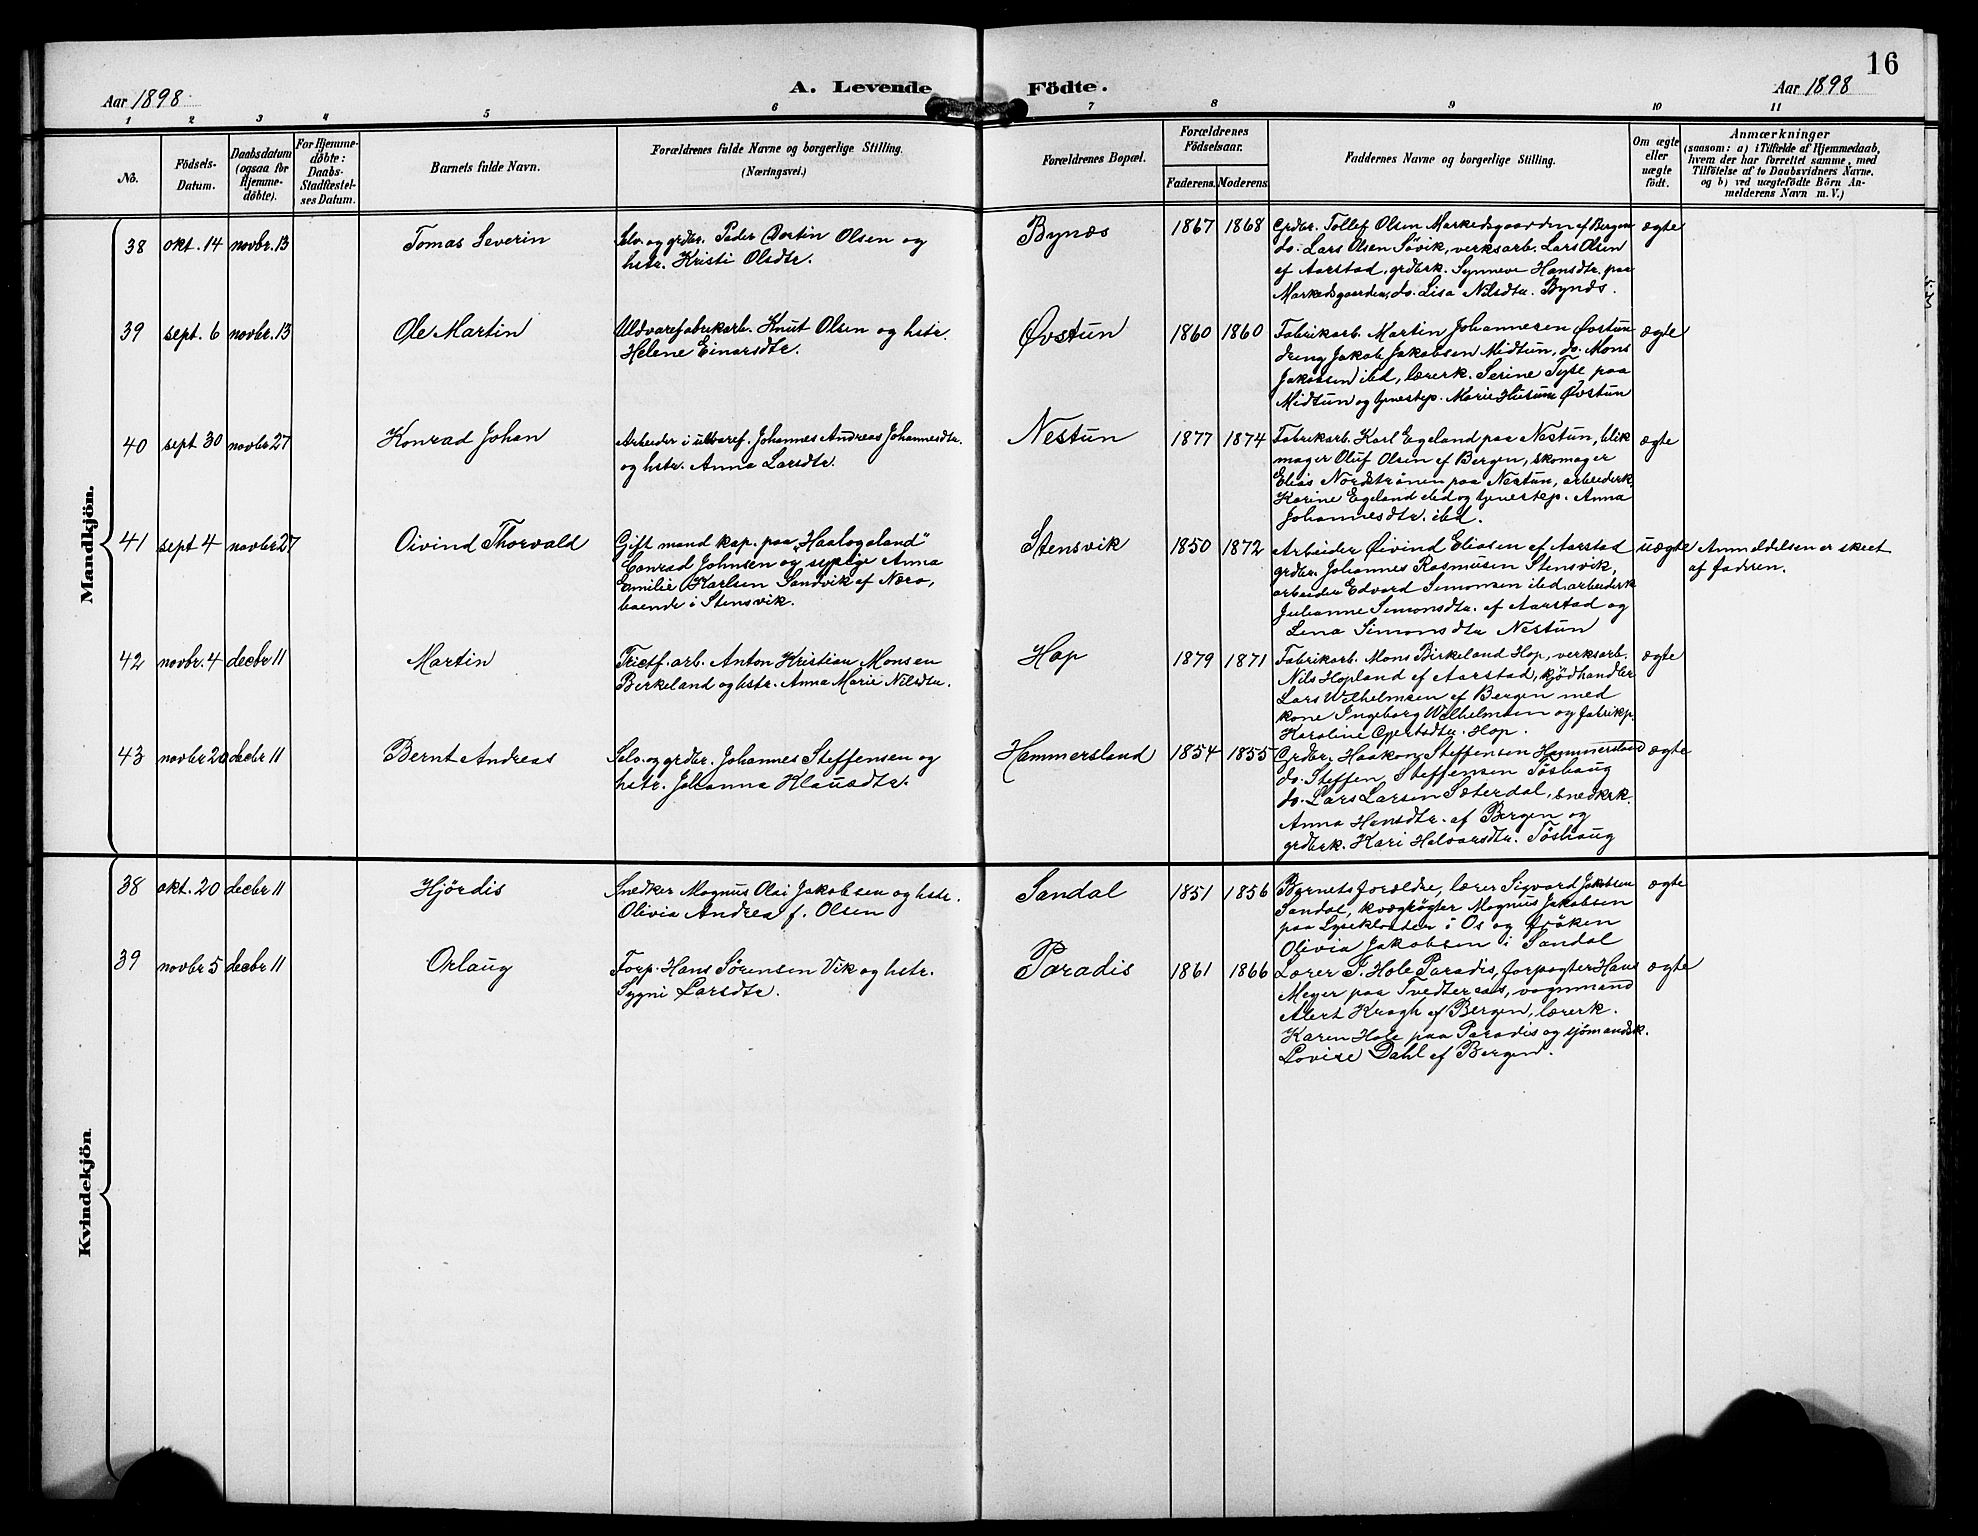 16
Aar 1898
A. Levende Födte.
Aar 1898
1 2 3 4 5 6 7 8 9 10 11
No.
Födsels-
Datum.
Daabsdatum
(ogsaa for
Hjemme-
döbte).
For Hjemme-
döbte:
Daabs-
Stadfæstel-
ses Datum.
Barnets fulde Navn.
Forældrenes fulde Navne og borgerlige Stilling.
(Næringsvei.)
Forældrenes Bopæl.
Forældrenes
Födselsaar.
Faderens. Moderens.
Faddernes Navne og borgerlige Stilling.
Om ægte
eller
uægte
födt.
Anmærkninger
(saasom: a) i Tilfælde af Hjemmedaab,
hvem der har forrettet samme, med
Tilföielse af to Daabsvidners Navne,
og b) ved uægtefödte Börn An-
melderens Navn m. V.)
Mandkjön.
38 okt. 14 novbr. 13 Tomas Severin
Selv. og grdbr. Peder Olsen og
hstr. Kristi Olsdtr.
Bynæs 1867 1868
Grdbr. Tollef Olsen Markedsgaarden af Bergen
do. Lars Olsen Søvik, verksarb. Lars Olsen
af Aarstad, grdbrk. Synneve Hansdtr. paa
Markedsgaarden, do. Lisa Nilsdtr. Bynæs.
ægte
39 sept. 6 novbr. 13 Ole Martin
Uldvarefabrikarb. Knut Olsen og hstr.
Helene Einarsdtr.
Øvstun 1860 1860
Fabrikarb. Martin Johannesen Øvstun
dreng Jakob Jakobsen Midtun, do. Mons
Jakobsen ibd, lærerk. Serine paa
Midtun og tjenestep. Marie Husum Øvstun
ægte
40 sept 30 novbr. 27 Konrad Johan
Arbeider i uldvaref. Johannes Andreas Johannesdtr.
og hstr. Anna Larsdtr.
Nestun 1877 1874
Fabrikarb. Karl Egeland paa Nestun, blik
mager Oluf Olsen af Bergen, skomager
Elias Nordstrønen paa Nestun, arbeiderk.
Karine Egeland ibd og tjenestep. Anna
Johannesdtr. ibd.
ægte
41 sept 4 novbr 27 Oivind Thorvald
Gift mand kap. paa „Haalogaland"
Conrad Johnsen og sypige Anna
Emilie Karlsen Sandvik af Nærø,
boende i Stensvik.
Stensvik 1850 1872
Arbeider Øivind Eliasen af Aarstad
grdbr. Johannes Rasmusen Stensvik,
arbeider Edvard Simonsen ibd. arbeiderk
Julianne Simonsdtr. af Aarstad og
Lena Simonsdtr Nestun
uægte
Anmeldelsen er skeet
af fadren.
42 novbr. 4 decbr 11 Martin
arb. Anton Kristian Monsen
Birkeland og hstr. Anna Marie Nilsdtr.
Hop 1879 1871
Fabrikarb. Mons Birkeland Hop, verksarb.
Nils Hopland af Aarstad, kjødhandler
Lars Wilhelmsen af Bergen med
kone Ingeborg Wilhelmsen og fabrikp.
Karoline Hop.
ægte
43 novbr 20 decbr 11 Bernt Andreas
Selv. og grdbr. Johannes Steffensen og
hstr. Johanna Klausdtr.
Hammersland 1854 1855
Grdbr. Haakon Steffensen Hammersland
do. Steffen Steffensen Töshaug
do. Lars Larsen Sæterdal, snedkrk.
Anna Hansdtr. af Bergen og
grdbrk. Kari Halvarsdtr. Töshaug
ægte
Kvindekjön
38 okt. 20 decbr 11 Hjördis
Snedker Magnus Olai Jakobsen og hstr.
Olivia Andrea f. Olsen
Sandal 1851 1856
Barnets forældre, lærer Sigvard Jakobsen
Sandal, kvægrøgter Magnus Jakobsen
paa Lyseklosten i Os og frøken
Olivia Jakobsen i Sandal
ægte
39 novbr 5 decbr 11 Orlaug
Forp. Hans Sörensen Vik og hstr.
Sygni Larsdtr.
Paradis 1861 1866
Lærer I. Hole Paradis, forpagter Hans
Meyer paa vognmand
Alert Kragh af Bergen, lærerk.
Karen Hole paa Paradis og sjømandsk.
Lovise Dahl af Bergen.
ægte